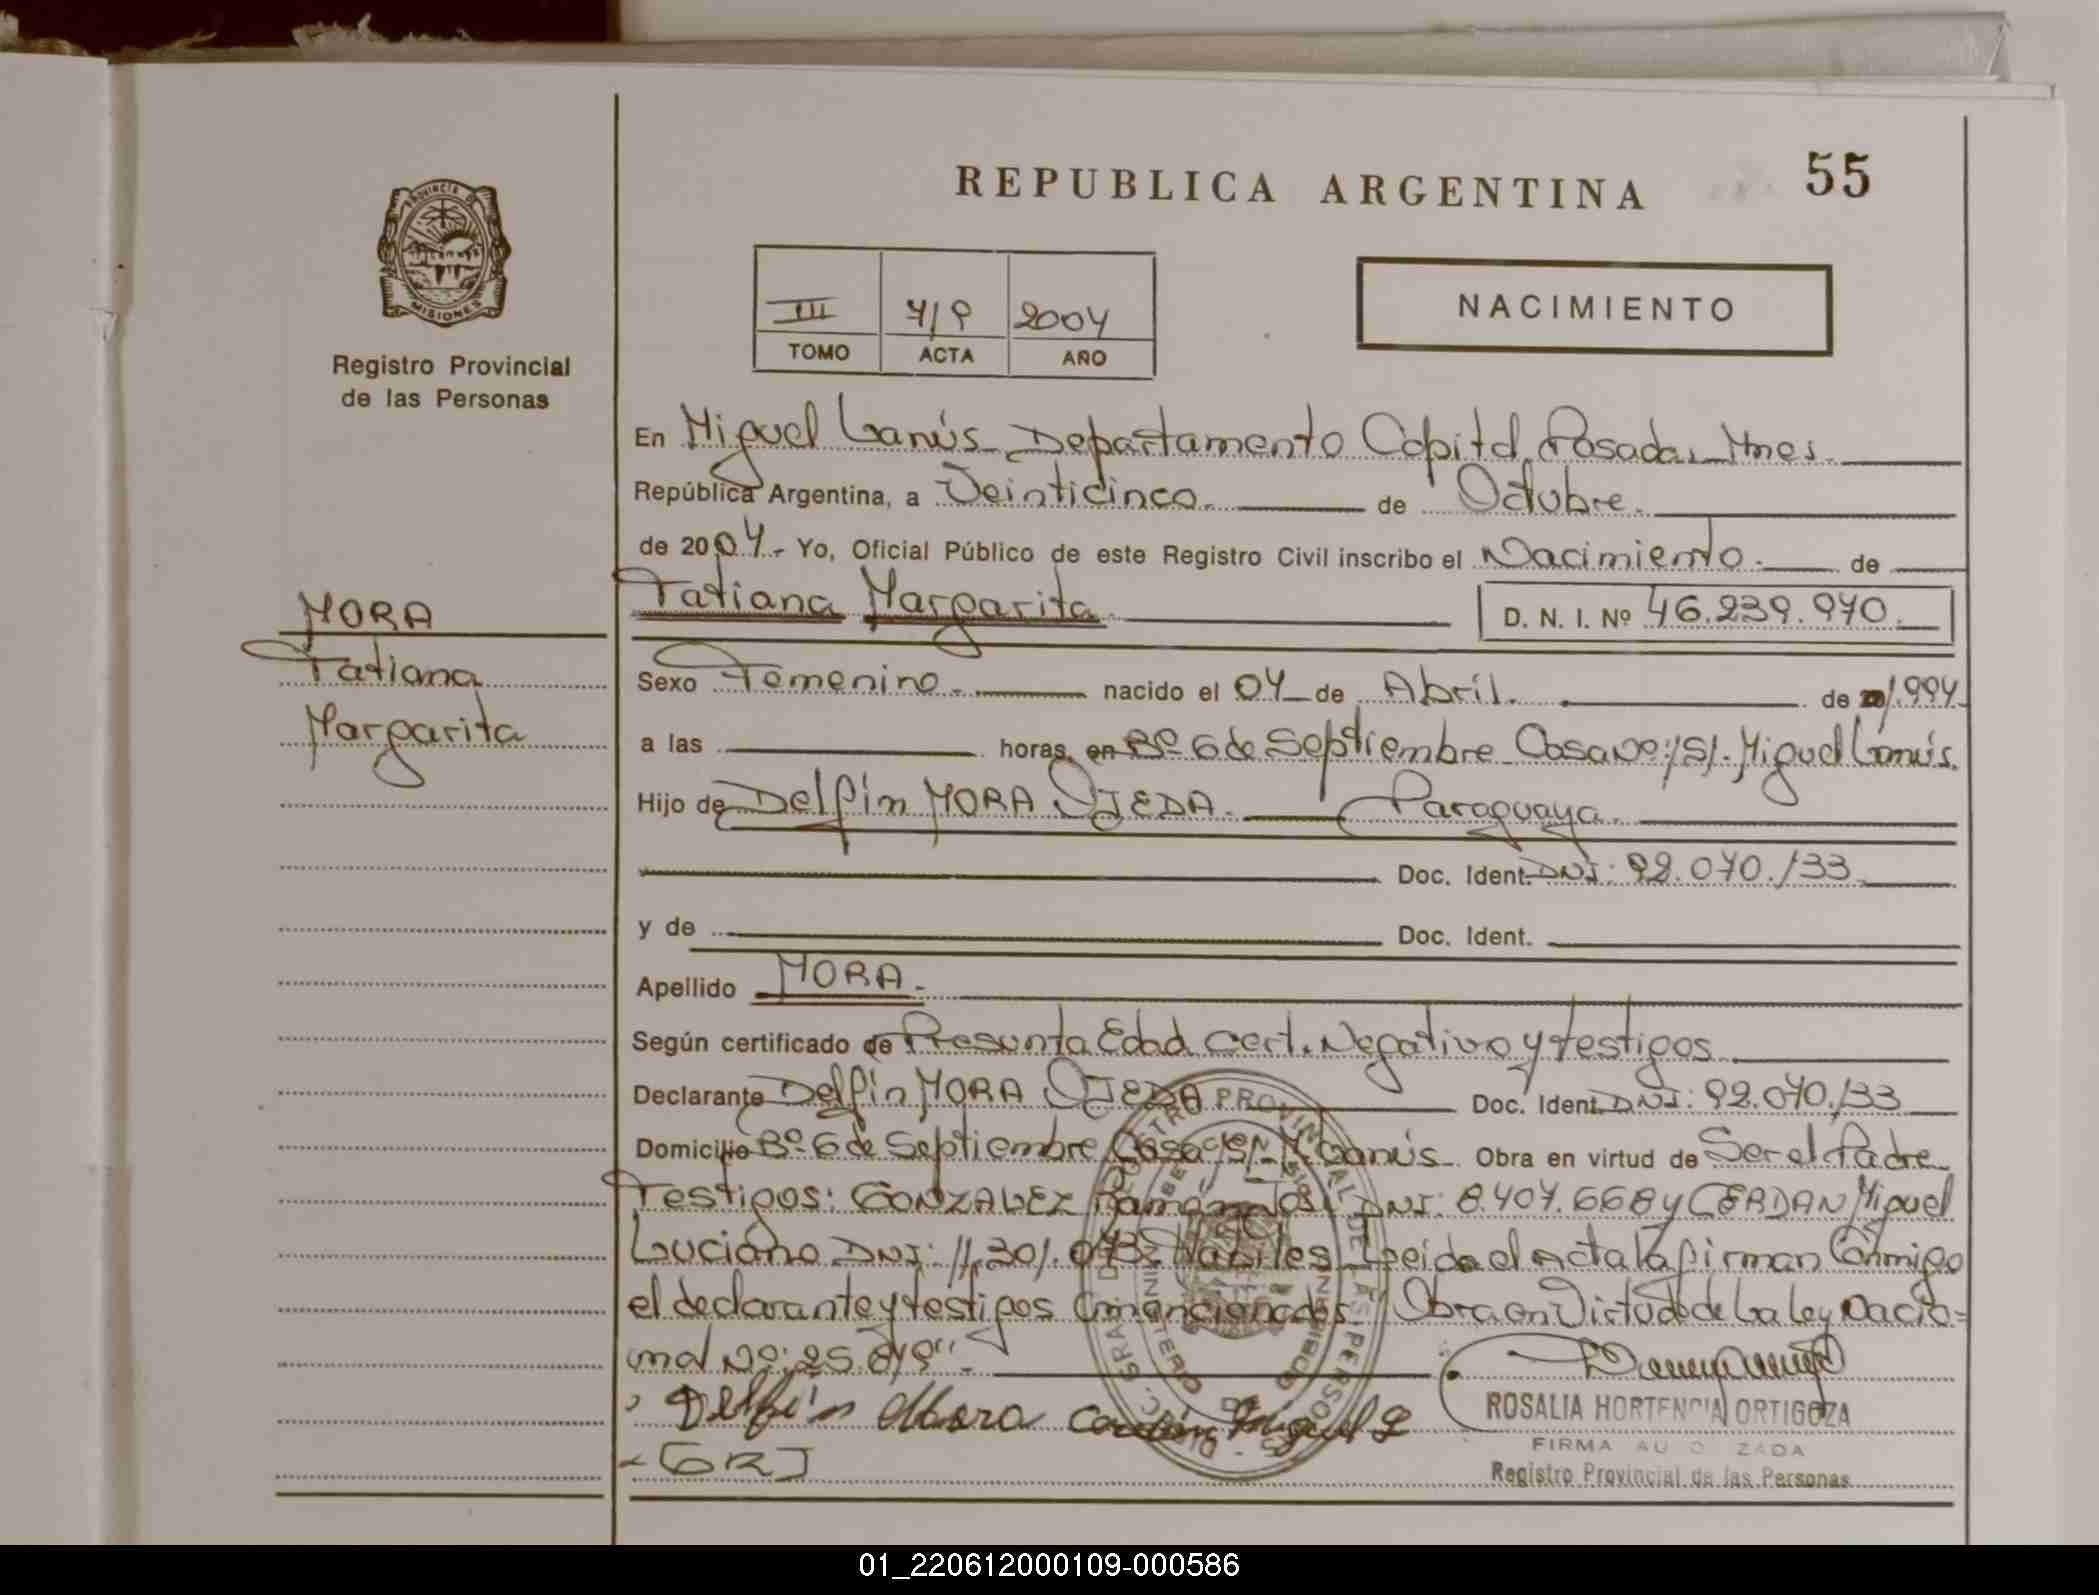 REPUBLICA ARGENTINA
55
PROVINCIA DE
MISIONES
Registro Provincial
de las Personas
III 419 2004
TOMO ACTA AÑO
NACIMIENTO
En Miguel Lanús Departamento Capital Posadas Mnes.
República Argentina, a Veinticinco. de Octubre.
de 2004.- Yo, Oficial Público de este Registro Civil inscribo el Nacimiento. de
Tatiana Margarita. D. N. I. Nº 46.239.970.
MORA
Tatiana
Margarita
Sexo Femenino. nacido el 04 de Abril. de 1.994.
a las horas, en Bº 6 de Septiembre Casa Nº: /S/. Miguel Lanús.
Hijo de Delfín MORA OJEDA. Paraguaya.
Doc. Ident. DNI: 92.070.133
y de Doc. Ident.
Apellido MORA.
Según certificado de Presunta Edad Cert. Negativo y testigos
Declarante Delfín MORA OJEDA Doc. Ident. DNI: 92.070.133
Domicilio Bº 6 de Septiembre Casa M. Lanús. Obra en virtud de Ser el Padre
Testigos: GONZALEZ Ramón DNI: 8.407.668 y CERDAN Miguel
Luciano DNI: 11.301.073 Habiles Leida el Acta la firman Conmigo
el declarante y testigos "Obra en Virtud de la ley Nacio=
nal Nº: 25.819".
Delfin Mora Cerdán Miguel L
GRJ
ROSALIA HORTENCIA ORTIGOZA
FIRMA AUTORIZADA
Registro Provincial de las Personas
01_220612000109-000586